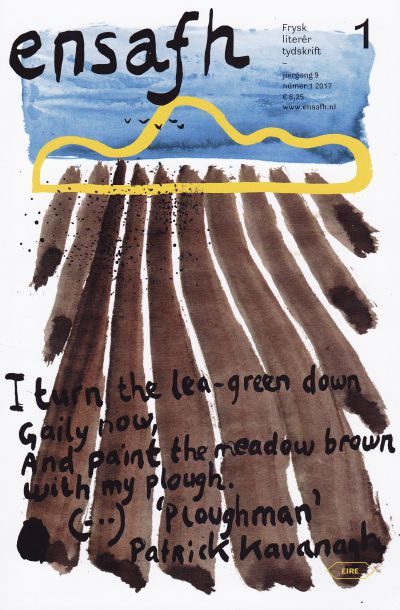 ensafh
Frysk
literêr
tydskrift
–
jiergong 9
nûmer 1 2017
€ 6,25
www.ensafh.nl
1
I turn the lea-green down
Gaily now,
And paint the meadow brown
with my plough.
(-··) 'Ploughman'
Patrick Kavanagh
ÉIRE